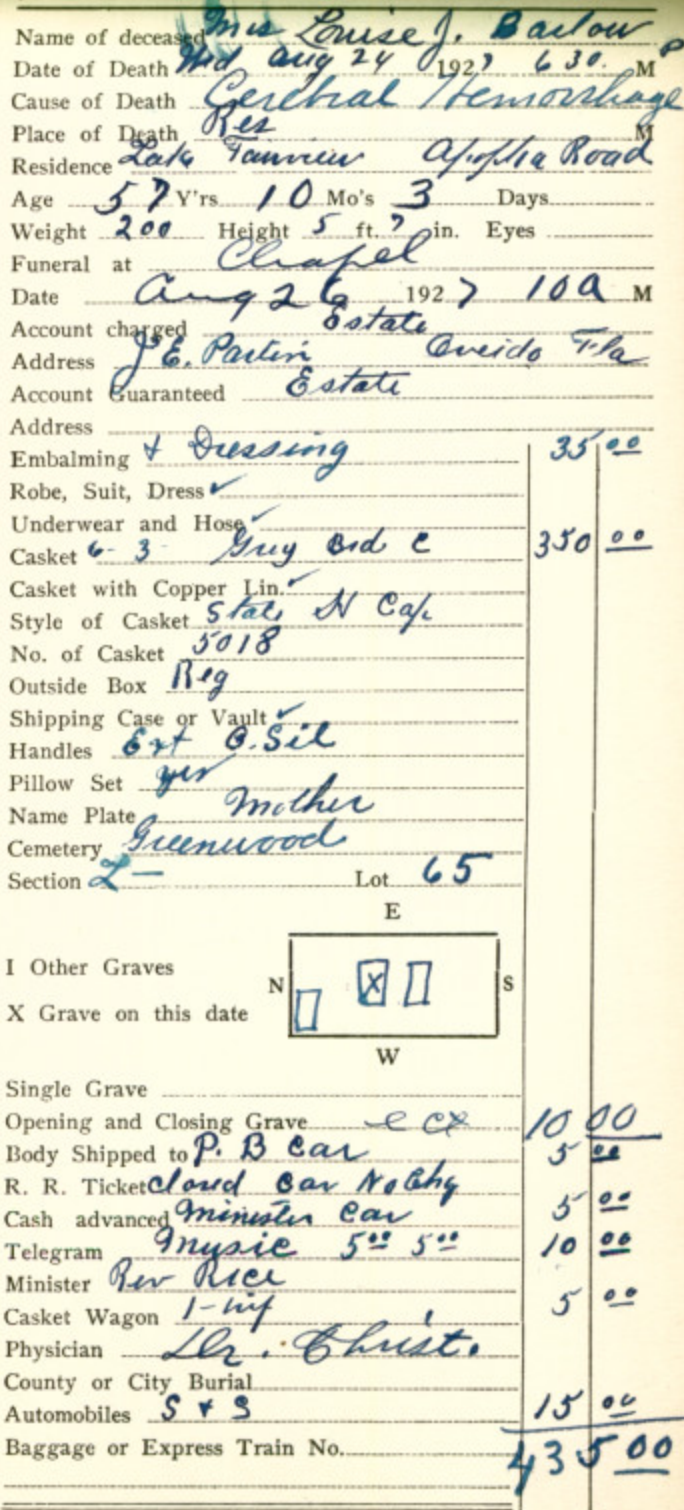 Name of deceased Mrs Louise J. Barlow
Date of Death Wed Aug 24 1927 6 30. P M
Cause of Death Cerebral Hemorrhage
Place of Death Res M
Residence Lake Fairview Apopka Road
Age 57 Y'rs 10 Mo's 3 Days
Weight 200 Height 5 ft. 7 in. Eyes
Funeral at Chapel
Date Aug 26 1927 10 a M
Account charged Estate
Address J. E. Partin Oveido Fla
Account Guaranteed Estate
Address
Embalming & Dressing 35 00
Robe, Suit, Dress ✓
Underwear and Hose ✓
Casket 6-3 Grey Brd C 350 00
Casket with Copper Lin. ✓
Style of Casket State N Cap
No. of Casket 5018
Outside Box Reg
Shipping Case or Vault ✓
Handles Ext O. Sil
Pillow Set yes
Name Plate Mother
Cemetery Greenwood
Section L – Lot 65
E
I Other Graves
N X S
X Grave on this date
W
Single Grave
Opening and Closing Grave 10 00
Body Shipped to P. B Car 5 00
R. R. Ticket Closed Car No Chg
Cash advanced Minister Car 5 00
Telegram Music 5 00 5 00 10 00
Minister Rev Rice
Casket Wagon 5 00
Physician Dr. Christ.
County or City Burial
Automobiles S & S 15 00
Baggage or Express Train No. 435 00